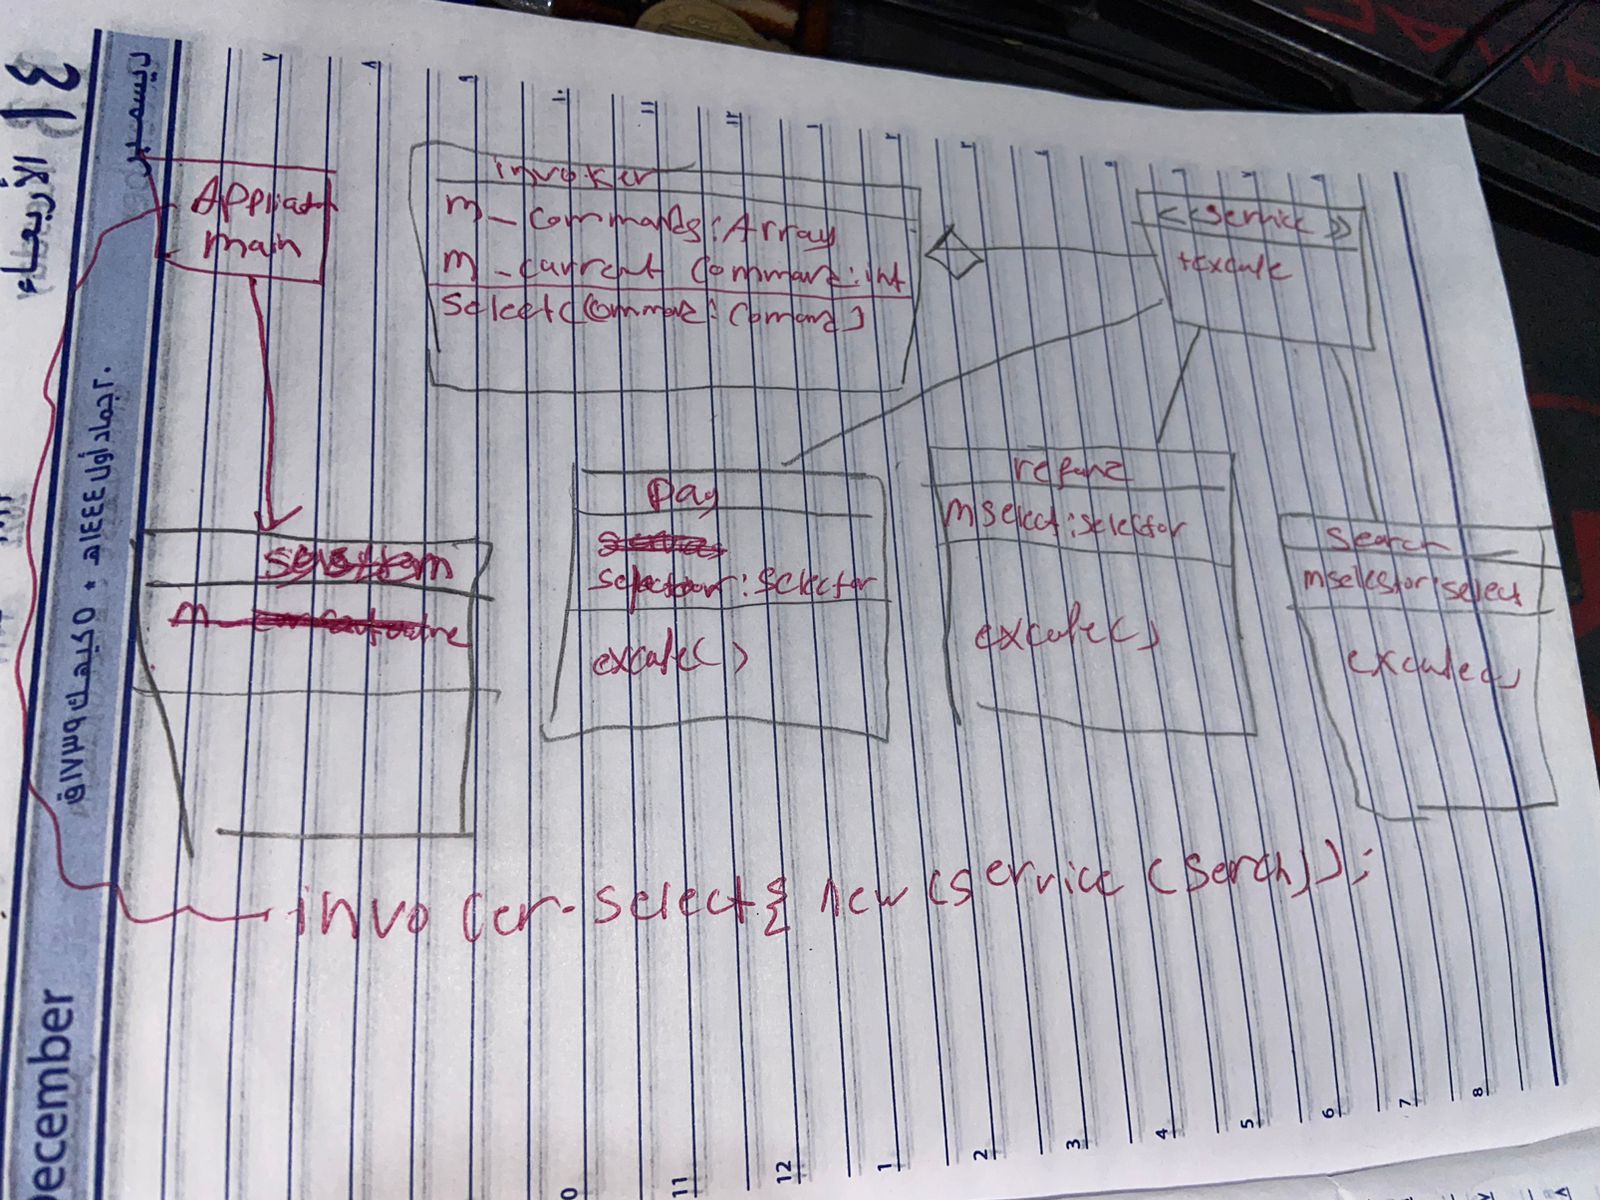 ١٤
الأربعاء
ديسمبر
٢٠ جماد أول ١٤٤٤هـ • ٥ كيهك ١٧٣٩ق
December
٧
٨
٩
١٠
١١
١٢
١
٢
main
invoker
m_commands:Array
m_current Commanz:int
select(Commanz:Comanz)
<<service>>
+excute
Pay
: selector
excute()
refunz
mselect:selector
excute()
search
mselestor:select
excute()
m
invo(er-select{ new (service (Serch));
11
12
1
2
3
4
5
6
7
8